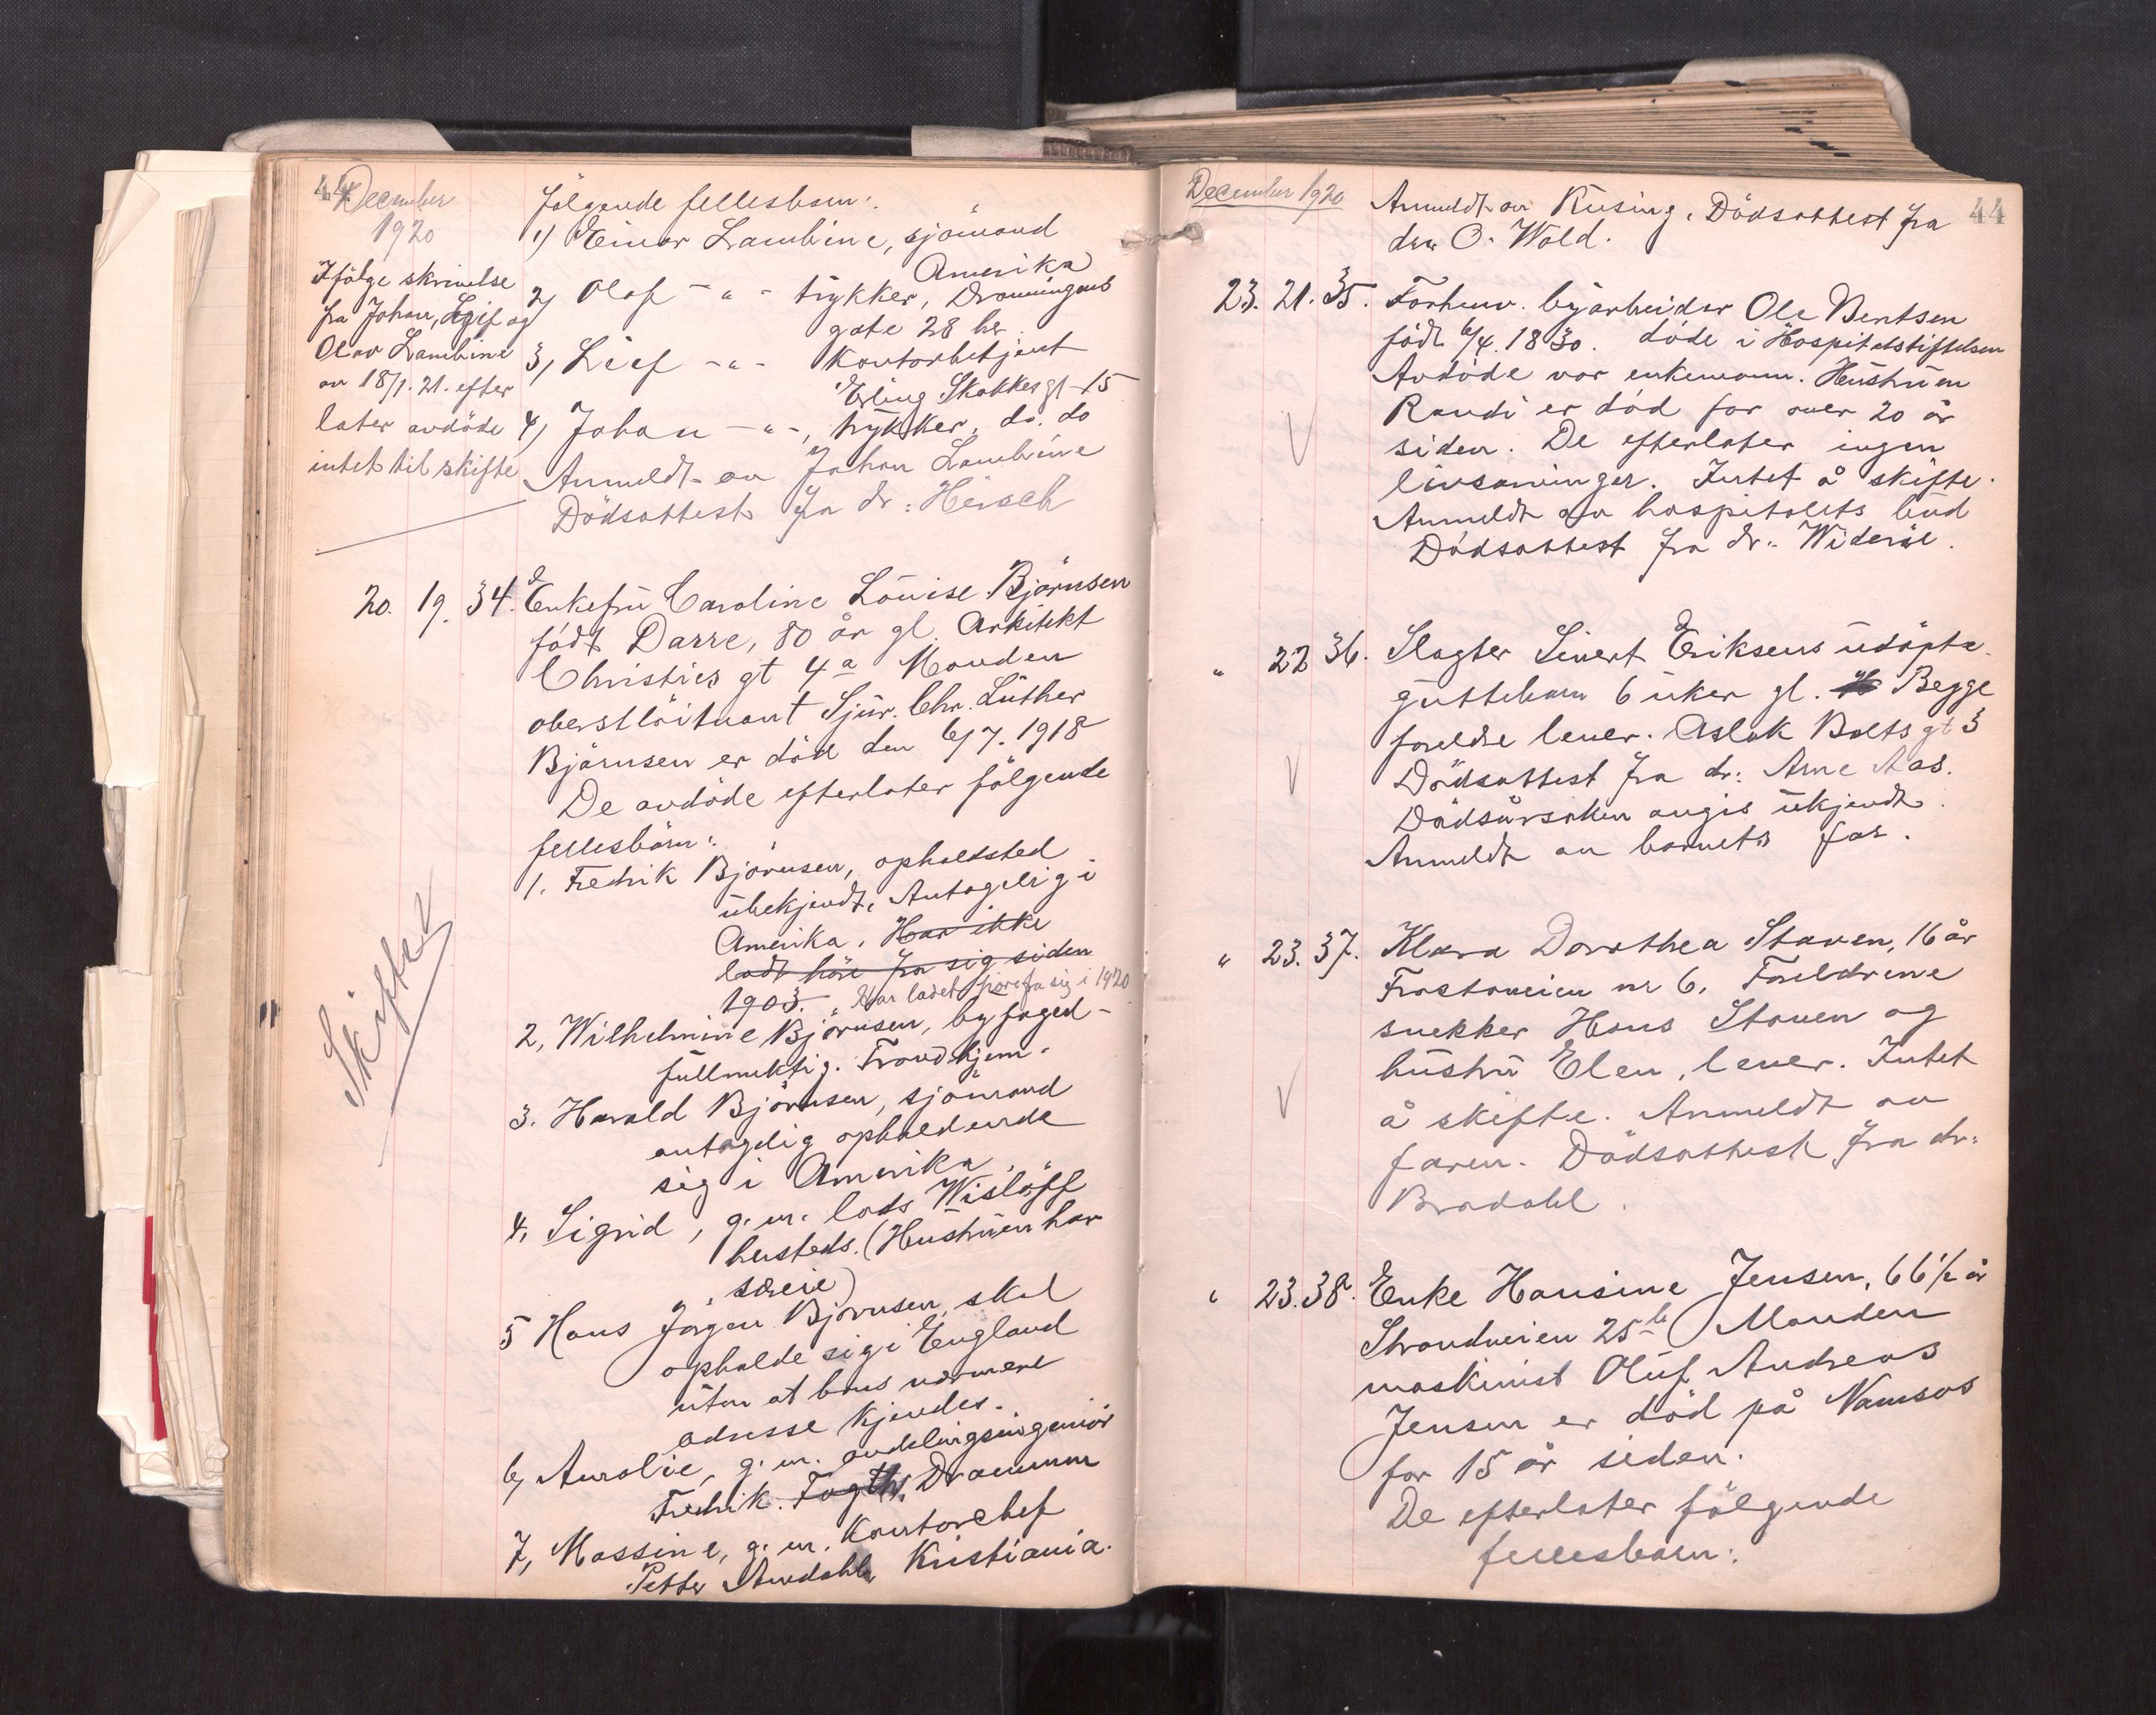 44
December
1920
Ifölge skrivelse
fra Johan, Leif og
Olav Lambine
av 18/1. 21. efter
later avdöde
intet til skifte
følgende fellesbarn:
1) Einar Lambine, sjömand
Amerika
2) Olaf - " - trykker, Dronningens
gate 28 hs.
3, Lief - " - Kontorbetjent
Erling Skakkes gt - 15
4) Johan - " -, trykker, do. do
Anmeldt av Johan Lambine
Dödsattest fra dr: Hirsch
20. 19. 34. Enkefru Caroline Louise Björnsen
født Darre, 80 år gl. Arkitekt
Christies gt 4a Manden
oberstlöitnant Sjur. Chr. Luther
Björnsen er död den 6/7. 1918
De avdöde efterlater fölgende
fellesbörn:
1. Fredrik Björnsen, opholdsted
ubekjendt, Antagelig i
Amerika. Har ikke
ladt höre fra sig siden
1903. Har ladet höre fra sig i 1920
2, Wilhelmine Björnsen, byfoged-
fullmektig. Trondhjem.
3. Harald Björnsen, sjömand
antagelig opholdende
sig i Amerika.
4, Sigrid, g. m. lods Wislöff
hersteds. (Hustruen har
særeie)
5 Hans Jörgen Björnsen, skal
opholde sig i England
uten at hans nærmere
adresse kjendes.
6, Amalie, g. m. avdelingsingeniör
Fredrik Vogth, Drammen
7, Massine, g. m. Kontorchef
Petter Amdahl, Kristiania.
Skiftet
December 1920
44
Anmeldt av Küsing. Dödsattest fra
dr. O. Wold.
23. 21. 35. Forhenv. byarbeider Ole Bentsen
født 6/4. 1830. döde i Hospitalstiftelsen
Avdöde var enkemann. Hustruen
Randi er död for over 20 år
siden. De efterlater ingen
livsarvinger. Intet å skifte.
Anmeldt av hospitalets bud
Dödsattest fra dr. Wideröe.
" 22 36. Slagter Sivert Eriksens udöpte
guttebarn 6 uker gl. Begge
foreldre lever. Aslak Bolts gt 3
Dödsattest fra dr: Arne Aas.
Dödsårsaken angis ukjendt.
Anmeldt av barnets far.
" 23. 37. Klara Dorothea Staven, 16 år
Frostaveien nr 6. Foreldrene
snekker Hans Staven og
hustru Elen, lever. Intet
å skifte. Anmeldt av
faren. Dödsattest fra dr.
Bradahl.
" 23. 38. Enke Hansine Jensen, 66 1/2 år
Strandveien 25b Manden
maskinist Oluf Andreas
Jensen er död på Namsos
for 15 år siden.
De efterlater fölgende
fellesbarn: